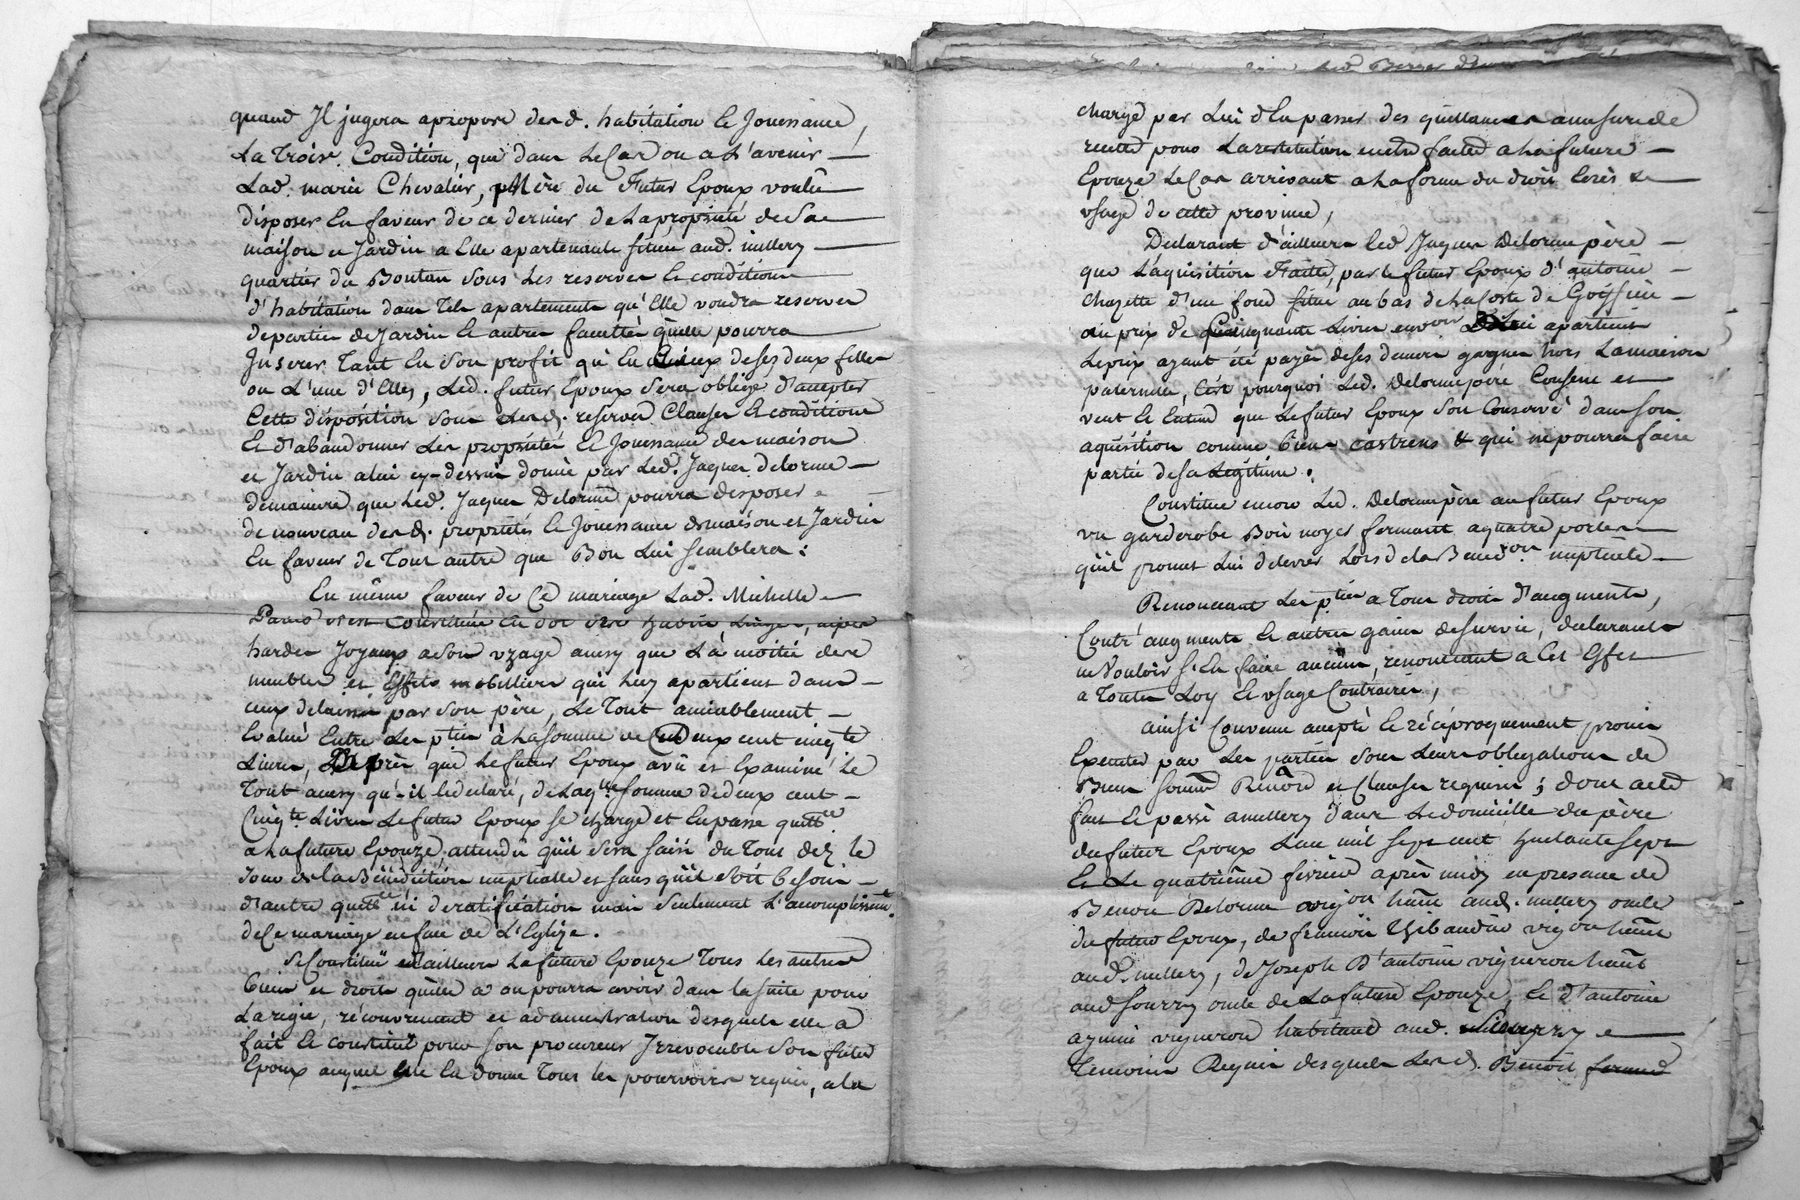 quand Il jugera apropore desd. habitation & Jouissance,
La Troise. Condition, que dans le Cas ou a L'avenir
Lad. marie Chevalier, Mère du Futur Epoux voulu
disposer En faveur de ce dernier de la propriété de Sa
maison et Jardin a Elle apartenants située aud. millery
quartier du Boutan Sous Les reserves & conditions
d'habitation dans Tels apartements qu'Elle voudra reserver
de partie de Jardin & autres facultés qu'elle pourra
Inserer Tant En Son profit qu'En Ceux de ses deux filles
ou L'une d'Elles, Led. futur Epoux Sera obligé d'accepter
Cette disposition Sous Lesd. reserves Clauses & conditions
Et d'abandonner Les propriétés & Jouissance des maison
et Jardin a lui cy-dessus donné par Led. Jaques delorme
de maniere que Led. Jaques Delorme pourra disposer
de nouveau desd. propriétés & Jouissance de maison et Jardin
En faveur de Tout autre que Bon Lui Semblera :
En même faveur de Ce mariage Lad. Michelle
Constitué En dot Ses habits Linges, nipes
hardes Joyaux a Son uzage ainsy que La moitié des
meubles et Effets mobilliers qui Luy apartient dans
ceux delaissés par Son père, Le Tout amiablement
Evalué Entre Les ptïes à la Somme de deux cent cinqte
Livres, Après que Le futur Epoux a vû et Examiné Le
Tout ainsy qu'il le declare, de Laqlle. Somme de deux cent
Cinqte. Livres Le futur Epoux Se charge et En passe quittce
a la future Epouze, attendû qu'il Sera Saisi du Tout dez le
Jour de la Bénédiction nuptialle et Sans qu'il Soit besoin
d'autre quittce ni de ratification mais Seulement L'accomplissemt.
de Ce mariage en face de L'Eglize.
Se Constitue d'ailleurs La future Epouze Tous Les autres
biens et droits qu'elle a ou pourra avoir dans la Suite pour
La regie, récouvrement et administration desquels elle a
fait & constitué pour Son procureur Irrevocable Son futur
Epoux auquel elle En donne Tous les pouvoirs requis, a la
charge par Lui d'En passer des quittances a mesure de
recette pour La restitution en etre faitte a La future
Epouze Le Cas arrivant a La forme du droit Ecrit &
usage de cette province,
Declarant d'ailleurs led. Jaques Delorme père
que L'aquisition Faitte, par le futur Epoux d'antoine
Chazette d'un fond Situé au bas de La Coste de Goiffieu
au prix de Cinquante Livres environ apartient
Le prix ayant eté payé de ses deniers gagnés hors La maison
paternelle, C'est pourquoi Led. Delorme père Consent et
veut & Entend que Le futur Epoux Soit Conservé dans Son
aquisition comme biens castrens & qui ne pourra faire
partie de Sa Legitime.
Constitue encore Led. Delorme père au futur Epoux
un garderobe Bois noyer fermant a quatre portes
qu'il promet Lui delivrer Lors de La Bened.on nuptiale
Renonceant Les ptïes a Tous droits d'augments,
Contr'augments & autres gains de Survie, declarants
ne Vouloir S'En faire aucuns, renonceant a Cet Effet
a Toutes Loy & usage Contraires,
ainsi Convenu accepté & réciproquement promis
Executer par Les parties Sous Leurs obligations de
Biens Soumn Renon et Clauses requises ; dont acte
fait & passé a millery dans Le domicille du père
du futur Epoux L'an mil Sept cent Huitante Sept
Et Le quatrième fevrier après midy en presence de
Benoit Delorme vigon habt aud. millery oncle
du futur Epoux, de françois Thibaudier vigon habt
aud. millery, de Joseph D'antoine vigneron habt
aud Sourzy oncle de La future Epouze, & d'antoine
vigneron habitant aud.
Temoins Requis desquels Lesd. Benoit